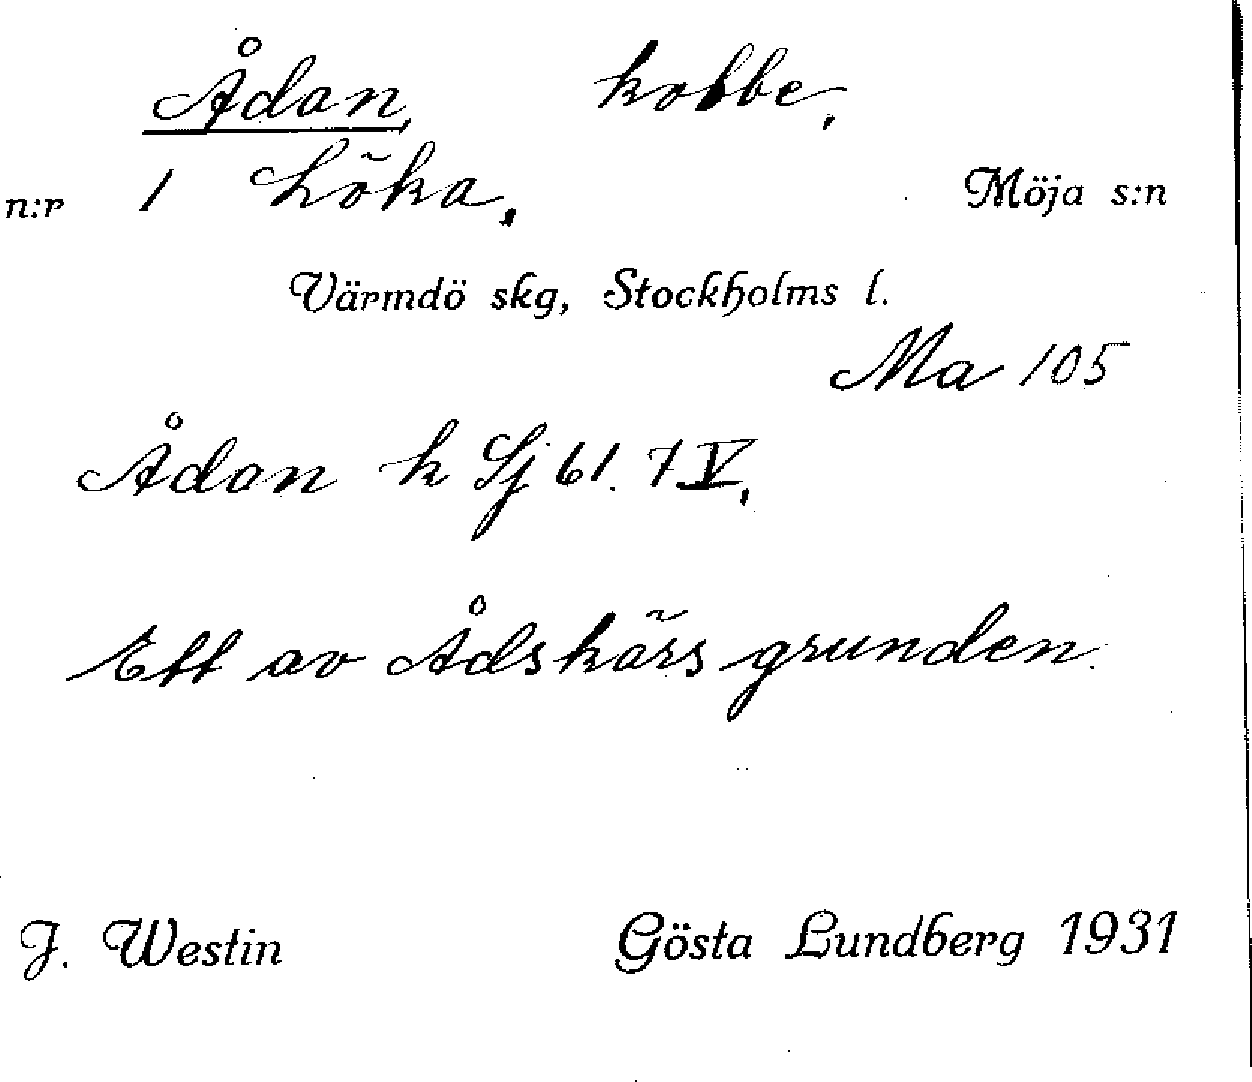 Ådan, kobbe,
n:r 1 Löka, Möja s:n
Värmdö skg, Stockholms l.
Ma 105
Ådan k Sj 61. 7 V,
Ett av Ådskärsgrunden.
J. Westin Gösta Lundberg 1931